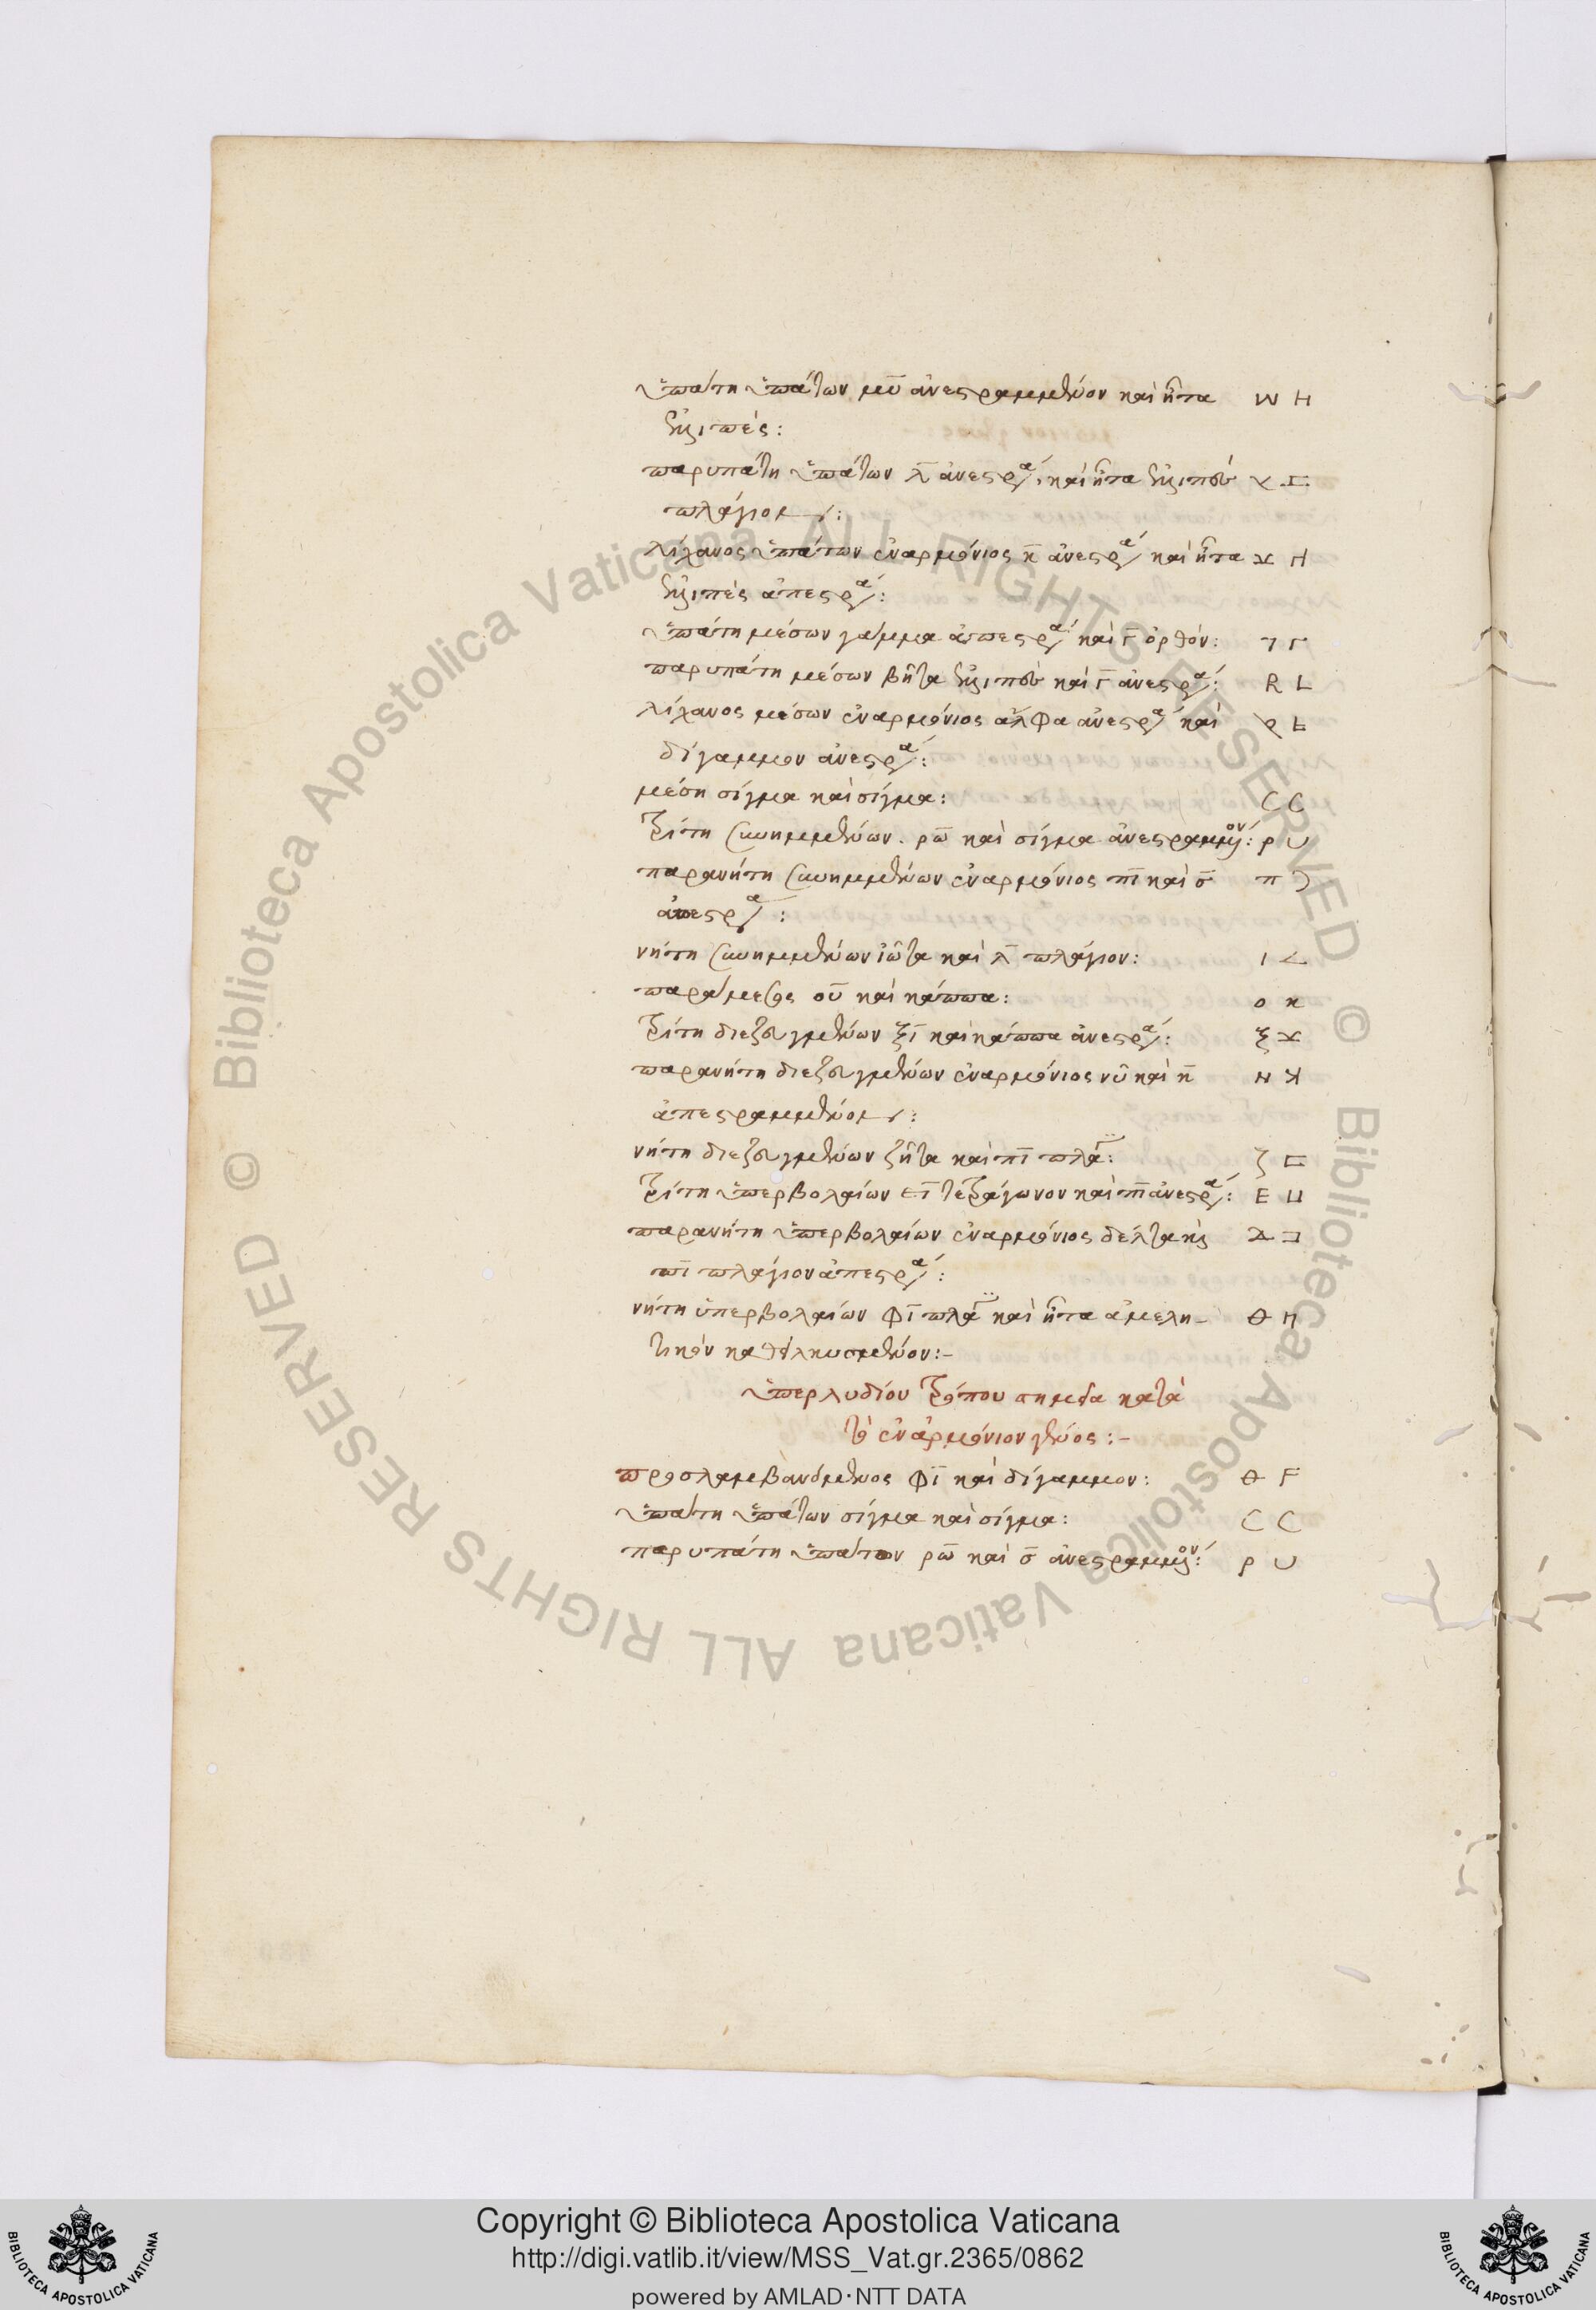 ὑπάτη ὑπάτων μῦ ἀνεστραμμένον καὶ ἦτα W H
ἐλλιπές:
παρυπάτη ὑπάτων λ̄ ἀνεστρα/. καὶ ἦτα ἐλλιποῦ
πλάγιον:
λίχανος ὑπάτων ἐναρμόνιος κ̄ ἀνεστρα/ καὶ ἦτα
ἐλλιπὲς ἀπεστρα/:
ὑπάτη μέσων γάμμα ἀπεστρα/ καὶ Γ̄ ὀρθόν: ⅂ Γ
παρυπάτη μέσων βῆτα ἐλλιποῦ καὶ Γ̄ ἀνεστρα/: R L
λίχανος μέσων ἐναρμόνιος ἄλφα ἀνεστρα/ καὶ
δίγαμμον ἀνεστρα/:
μέση σίγμα καὶ σίγμα: C C
τρίτη συνημμένων. ρ̄ω καὶ σίγμα ἀνεστραμμένον: ρ ᑌ
παρανήτη συνημμένων ἐναρμόνιος π̄ι καὶ σ̄ π Ͻ
ἀπεστρα/:
νήτη συνημμένων ἰῶτα καὶ λ̄ πλάγιον: ι <
παράμεσος οὖ καὶ κάππα: ο κ
τρίτη διεζευγμένων ξ̄ι καὶ κάππα ἀνεστρα/: ξ
παρανήτη διεζευγμένων ἐναρμόνιος νῦ καὶ κ̄
ἀπεστραμμένον:
νήτη διεζευγμένων ζῆτα καὶ π̄ι πλά: ζ ⊏
τρίτη ὑπερβολαίων ε̄ι τετράγωνον καὶ π̄ι ἀνεστρα/: E ⊔
παρανήτη ὑπερβολαίων ἐναρμόνιος δέλτα κ̀ ⊐
π̄ι πλάγιον ἀπεστρα/:
νήτη ὑπερβολαίων φ̄ι πλά καὶ ἦτα ἀμελη-
τικὸν καθειλκυσμένον:-
ὑπερλυδίου τρόπου σημεῖα κατὰ
τὸ ἐναρμόνιον γένος:-
προσλαμβανόμενος φ̄ι καὶ δίγαμμον: F
ὑπάτη ὑπάτων σίγμα καὶ σίγμα: C C
παρυπάτη ὑπάτων ρ̄ω καὶ σ̄ ἀνεστραμμένον: ρ ᑌ
Copyright © Biblioteca Apostolica Vaticana
http://digi.vatlib.it/view/MSS_Vat.gr.2365/0862
powered by AMLAD·NTT DATA